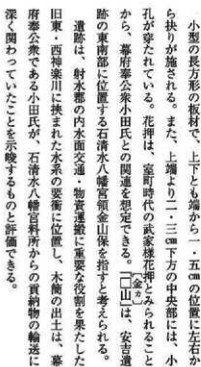 小型の長方形の板材で、上下とも端から一・五㎝の位置に左右か
ら抉りが施される。また、上端より二・三㎝下方の中央部には、小
孔が穿たれている。花押は、室町時代の武家様花押とみられること
から、幕府奉公衆小田氏との関連を想定できる。「[金ヵ]□山」は、安吉遺
跡の東南部に位置する石清水八幡宮領金山保を指すと考えられる。
遺跡は、射水郡の内水面交通・物資運搬に重要な役割を果たした
旧東・西神楽川に挟まれた水系の要衝に位置し、木簡の出土は、幕
府奉公衆である小田氏が、石清水八幡宮料所からの貢納物の輸送に
深く関わっていたことを示唆するものと評価できる。